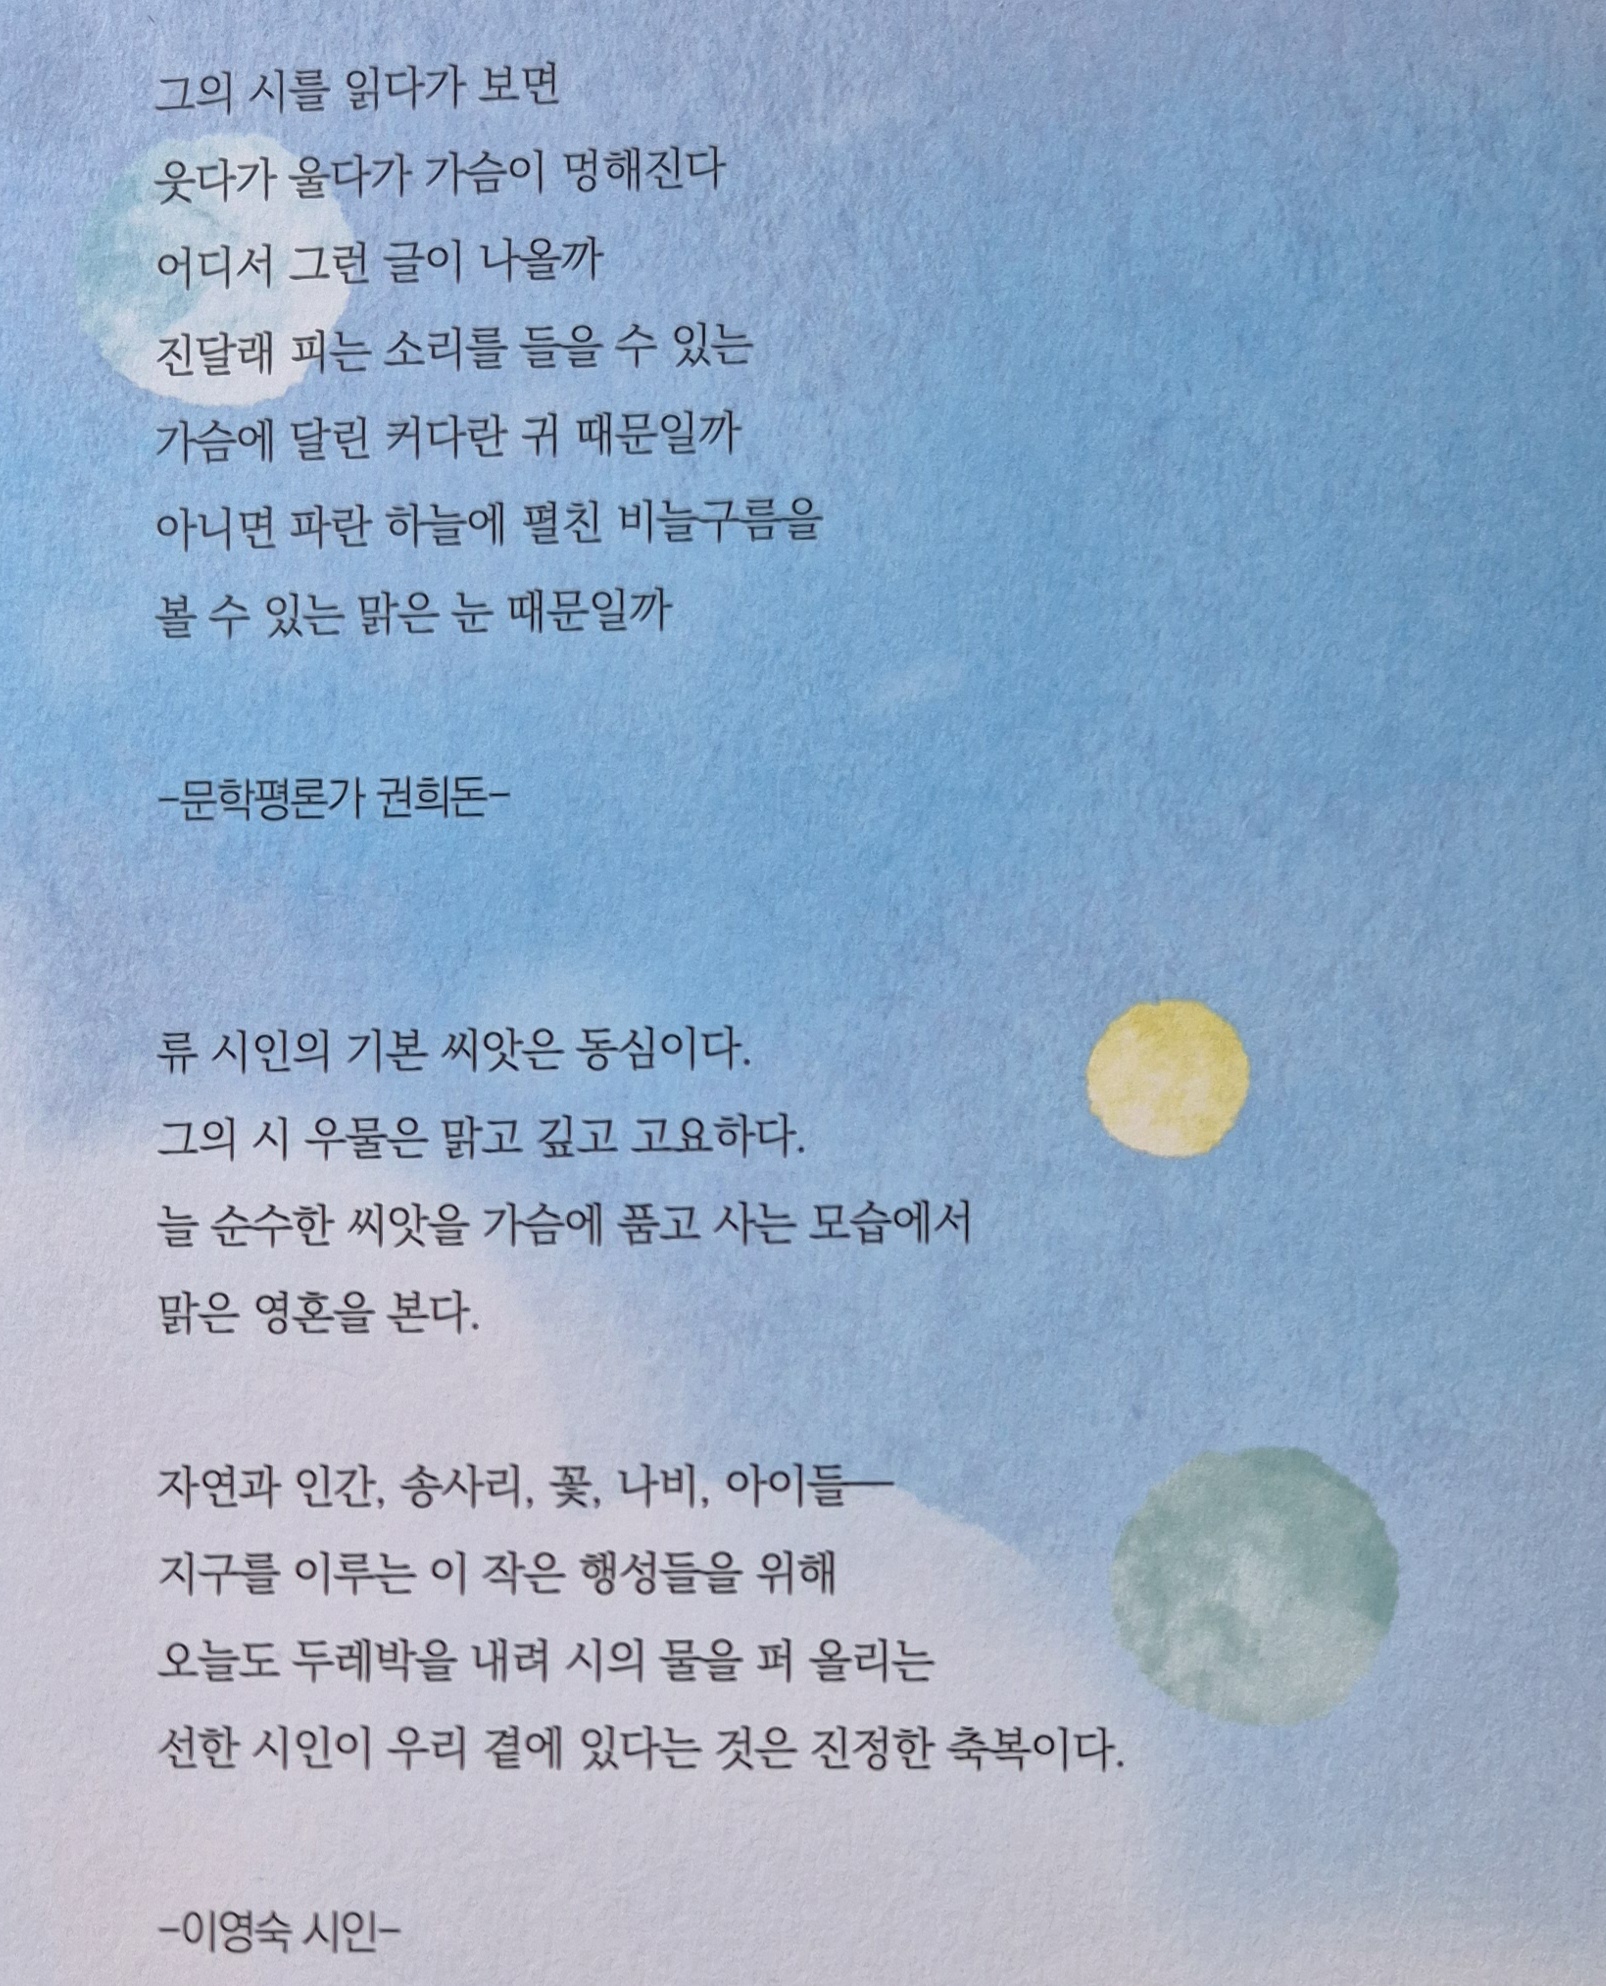 그의 시를 읽다가 보면
웃다가 울다가 가슴이 멍해진다
어디서 그런 글이 나올까
진달래 피는 소리를 들을 수 있는
가슴에 달린 커다란 귀 때문일까
아니면 파란 하늘에 펼친 비늘구름을
볼 수 있는 맑은 눈 때문일까
-문학평론가 권희돈-
류 시인의 기본 씨앗은 동심이다.
그의 시 우물은 맑고 깊고 고요하다.
늘 순수한 씨앗을 가슴에 품고 사는 모습에서
맑은 영혼을 본다.
자연과 인간, 송사리, 꽃, 나비, 아이들—
지구를 이루는 이 작은 행성들을 위해
오늘도 두레박을 내려 시의 물을 퍼 올리는
선한 시인이 우리 곁에 있다는 것은 진정한 축복이다.
-이영숙 시인-